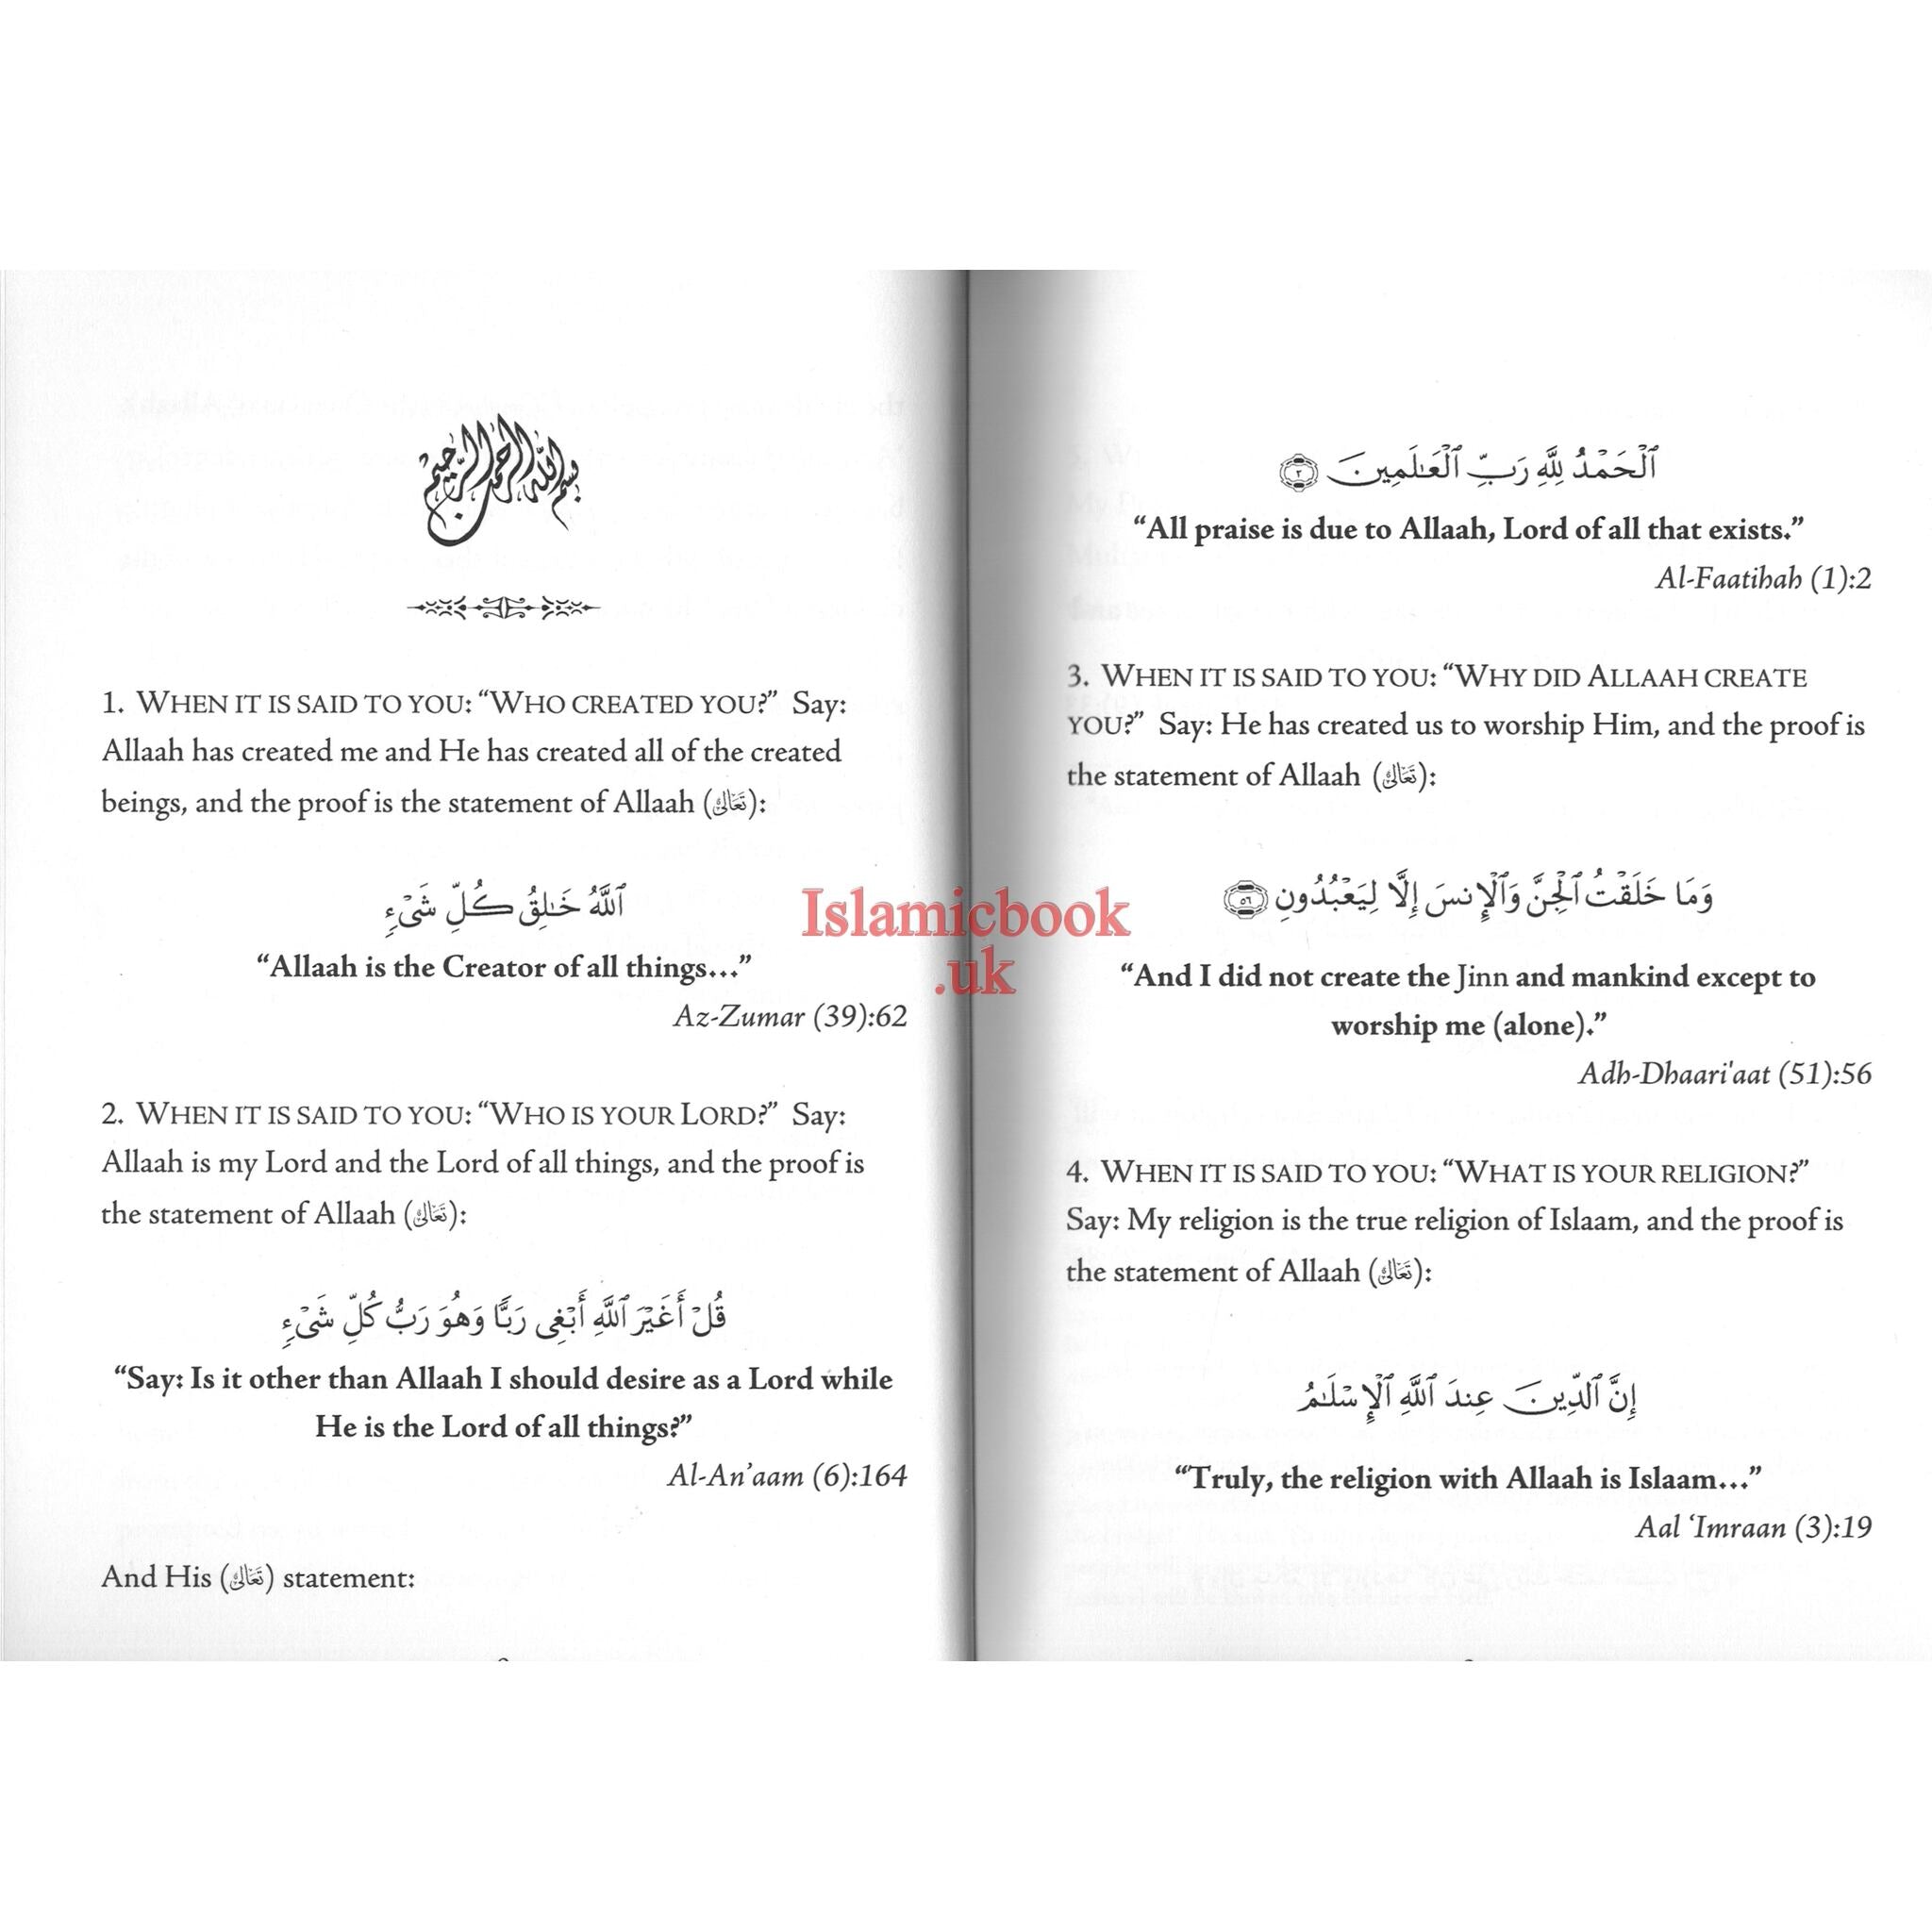 بسم الله الرحمن الرحيم
1. WHEN IT IS SAID TO YOU: “WHO CREATED YOU?” Say:
Allaah has created me and He has created all of the created
beings, and the proof is the statement of Allaah (تَعَالَىٰ):
ٱللَّهُ خَـٰلِقُ كُلِّ شَىْءٍ
“Allaah is the Creator of all things…”
Az-Zumar (39):62
2. WHEN IT IS SAID TO YOU: “WHO IS YOUR LORD?” Say:
Allaah is my Lord and the Lord of all things, and the proof is
the statement of Allaah (تَعَالَىٰ):
قُلْ أَغَيْرَ ٱللَّهِ أَبْغِى رَبًّا وَهُوَ رَبُّ كُلِّ شَىْءٍ
“Say: Is it other than Allaah I should desire as a Lord while
He is the Lord of all things?”
Al-An’aam (6):164
And His (تَعَالَىٰ) statement:
ٱلْحَمْدُ لِلَّهِ رَبِّ ٱلْعَـٰلَمِينَ ٢
“All praise is due to Allaah, Lord of all that exists.”
Al-Faatihah (1):2
3. WHEN IT IS SAID TO YOU: “WHY DID ALLAAH CREATE
YOU?” Say: He has created us to worship Him, and the proof is
the statement of Allaah (تَعَالَىٰ):
وَمَا خَلَقْتُ ٱلْجِنَّ وَٱلْإِنسَ إِلَّا لِيَعْبُدُونِ ٥٦
“And I did not create the Jinn and mankind except to
worship me (alone).”
Adh-Dhaari'aat (51):56
4. WHEN IT IS SAID TO YOU: “WHAT IS YOUR RELIGION?”
Say: My religion is the true religion of Islaam, and the proof is
the statement of Allaah (تَعَالَىٰ):
إِنَّ ٱلدِّينَ عِندَ ٱللَّهِ ٱلْإِسْلَـٰمُ
“Truly, the religion with Allaah is Islaam…”
Aal ‘Imraan (3):19
Islamicbook
.uk